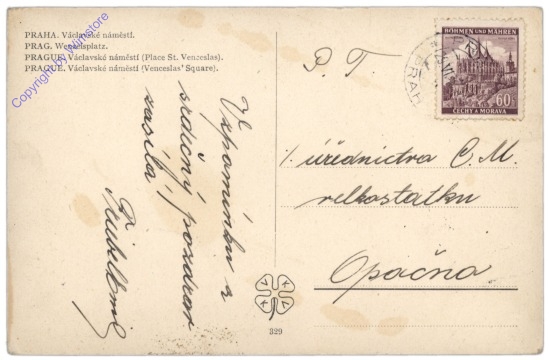 PRAHA. Václavské náměstí.
PRAG. Wenzelsplatz.
PRAGUE. Václavské náměstí (Place St. Venceslas).
PRAGUE. Václavské náměstí (Venceslas' Square).
Copyright by jWinstore
Vzpomínku a
srdečný pozdrav
zasílá
P. T.
úřednictvo C. M.
velkostatku
Opočno
BÖHMEN UND MÄHREN
60
ČECHY A MORAVA
PRAH
329